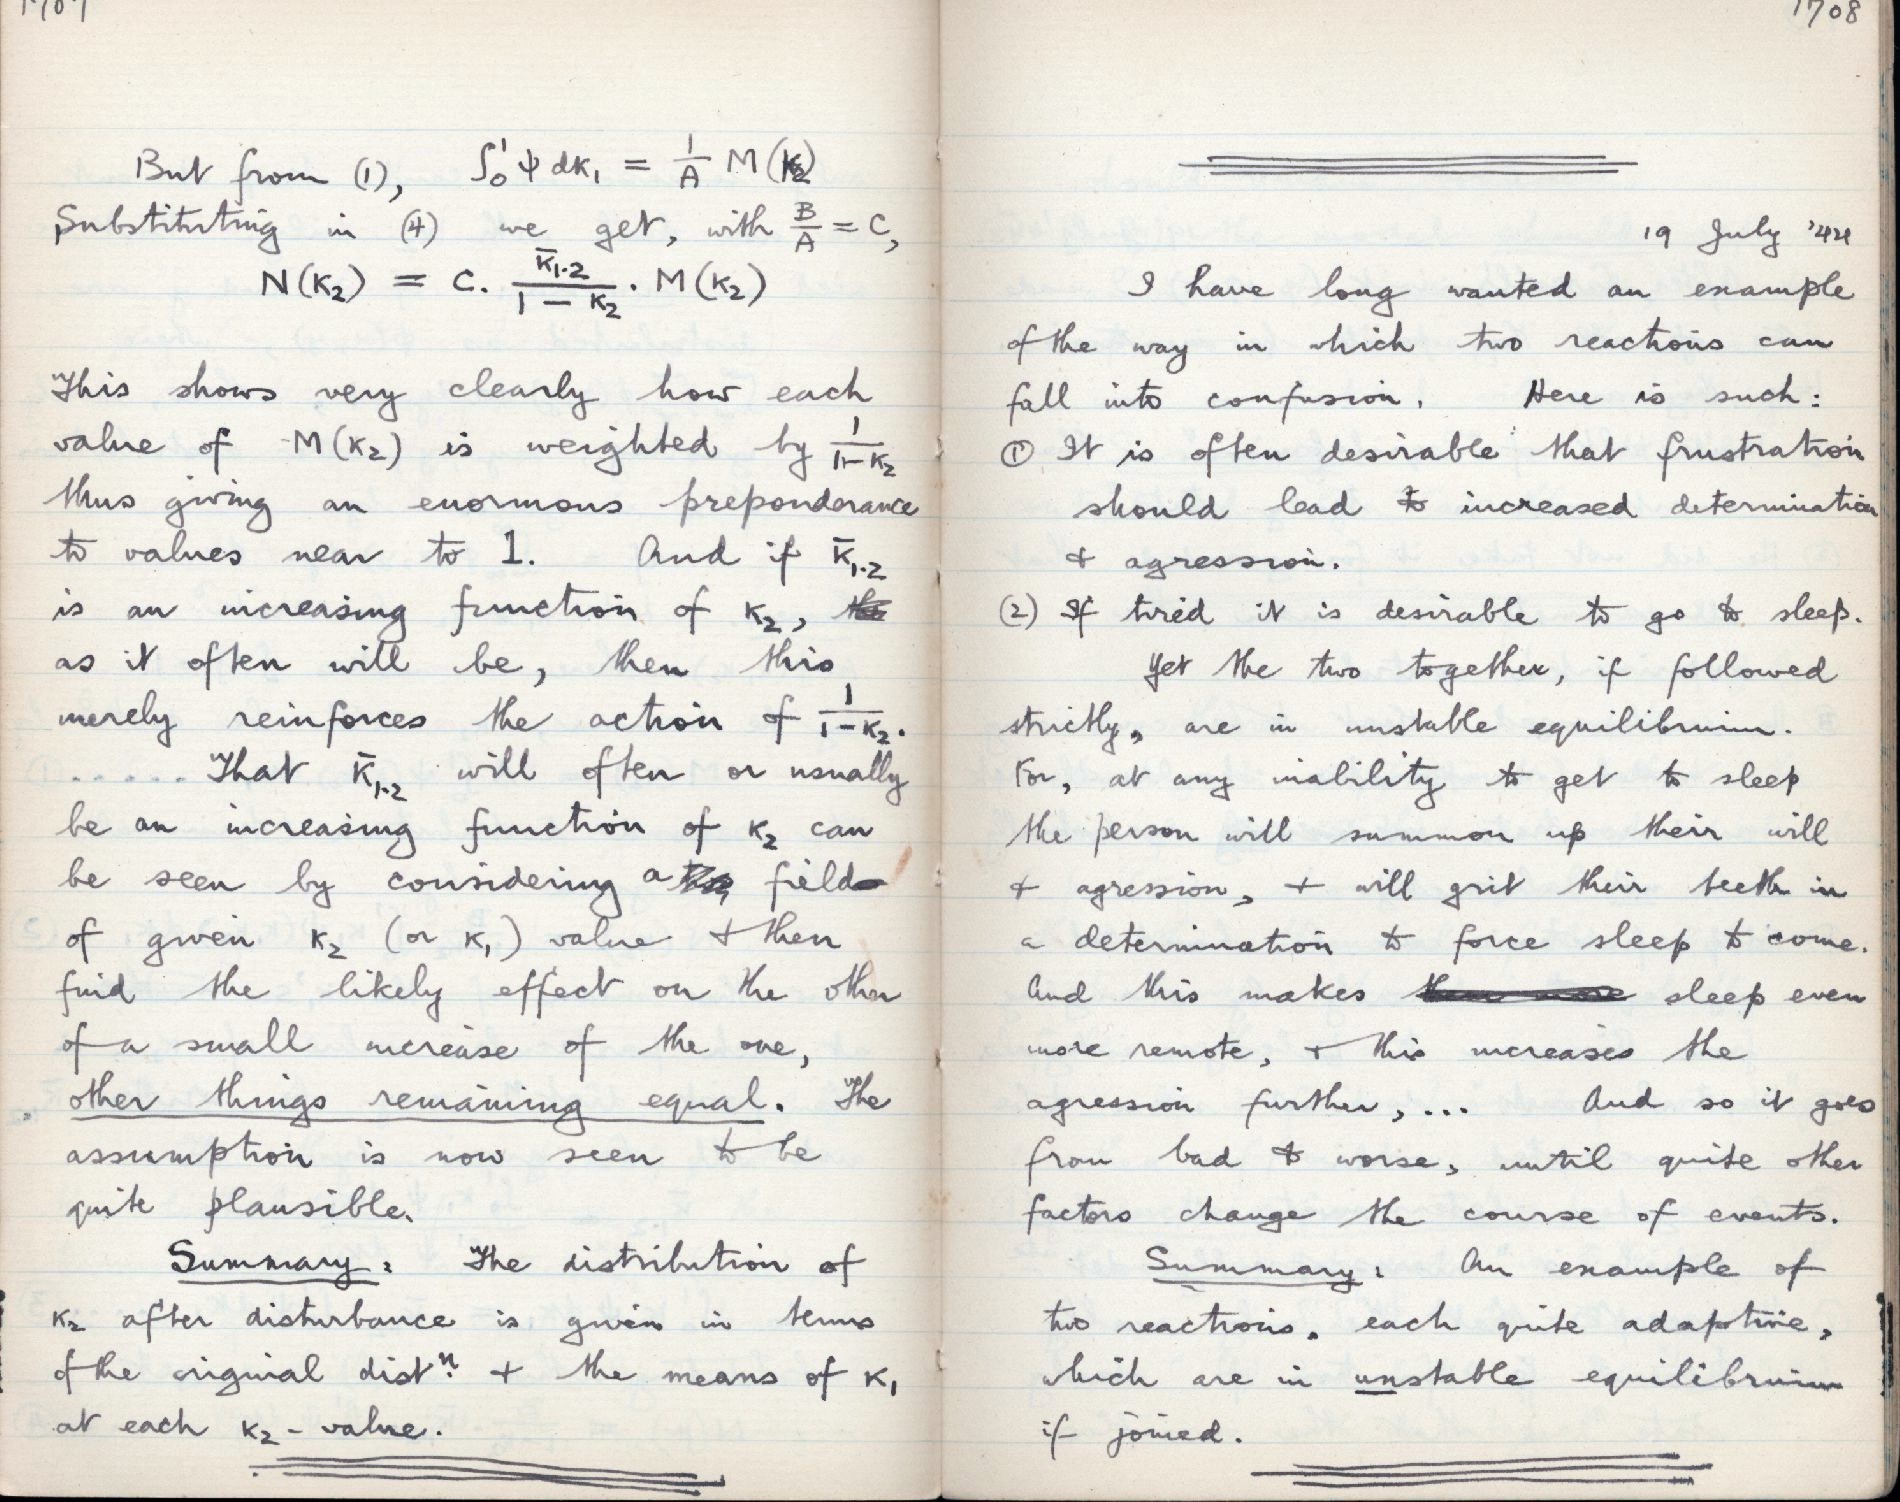 1707
But from (1), ∫₀¹ ψ dκ₁ = 1/A M(κ₂)
Substituting in (4) we get, with B/A = C,
N(κ₂) = C. κ̄₁.₂/(1 − κ₂) . M(κ₂)
This shows very clearly how each
value of M(κ₂) is weighted by 1/(1−κ₂)
thus giving an enormous preponderance
to values near to 1. And if κ̄₁.₂
is an increasing function of κ₂, the
as it often will be, then this
merely reinforces the action of 1/(1−κ₂).
...... That κ̄₁.₂ will often or usually
be an increasing function of κ₂ can
be seen by considering a field
of given κ₂ (or κ₁) value + then
find the likely effect on the other
of a small increase of the one,
other things remaining equal. The
assumption is now seen to be
quite plausible.
Summary: The distribution of
κ₂ after disturbance is given in terms
of the original distⁿ. + the means of κ₁
at each κ₂ - value.
1708
19 July '44
I have long wanted an example
of the way in which two reactions can
fall into confusion. Here is such:
① It is often desirable that frustration
should lead to increased determination
+ agression.
(2) If tired it is desirable to go to sleep.
Yet the two together, if followed
strictly, are in unstable equilibrium.
For, at any inability to get to sleep
the person will summon up their will
+ agression, + will grit their teeth in
a determination to force sleep to come.
And this makes them more sleep even
more remote, + this increases the
agression further, ... And so it goes
from bad to worse, until quite other
factors change the course of events.
Summary: An example of
two reactions, each quite adaptive,
which are in unstable equilibrium
if joined.